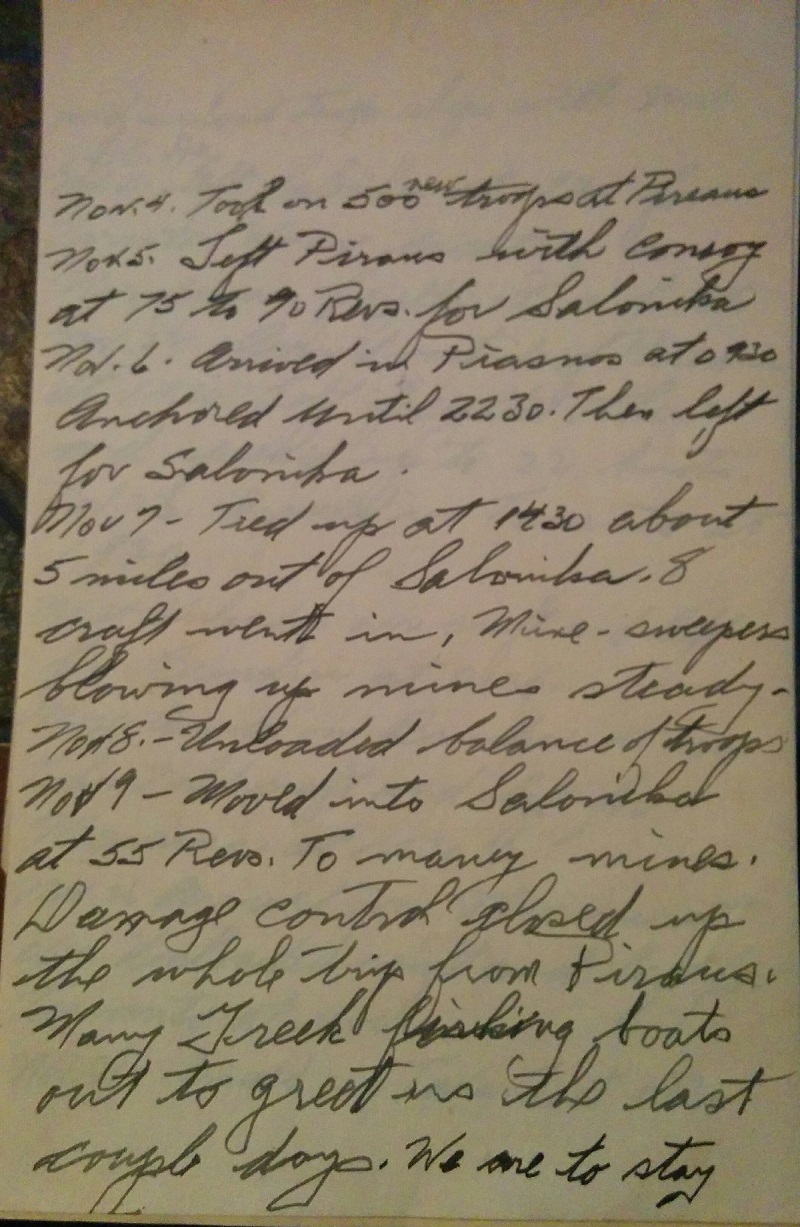 Nov. 4. Took on 500 new troops at Pireaus
Nov 5. Left Piraus with convoy
at 75 to 90 Revs. for Salonika
Nov. 6. Arrived in at 0930
Anchored until 2230. Then left
for Salonika.
Nov 7 - Tied up at 1430 about
5 miles out of Salonika. 8
craft went in, Mine-sweepers
blowing up mines steady.
Nov 8. - Unloaded balance of troops
Nov 9 - Moved into Salonika
at 55 Revs. To many mines.
Damage control closed up
the whole trip from Piraus.
Many Greek fishing boats
out to greet us the last
couple days. We are to stay